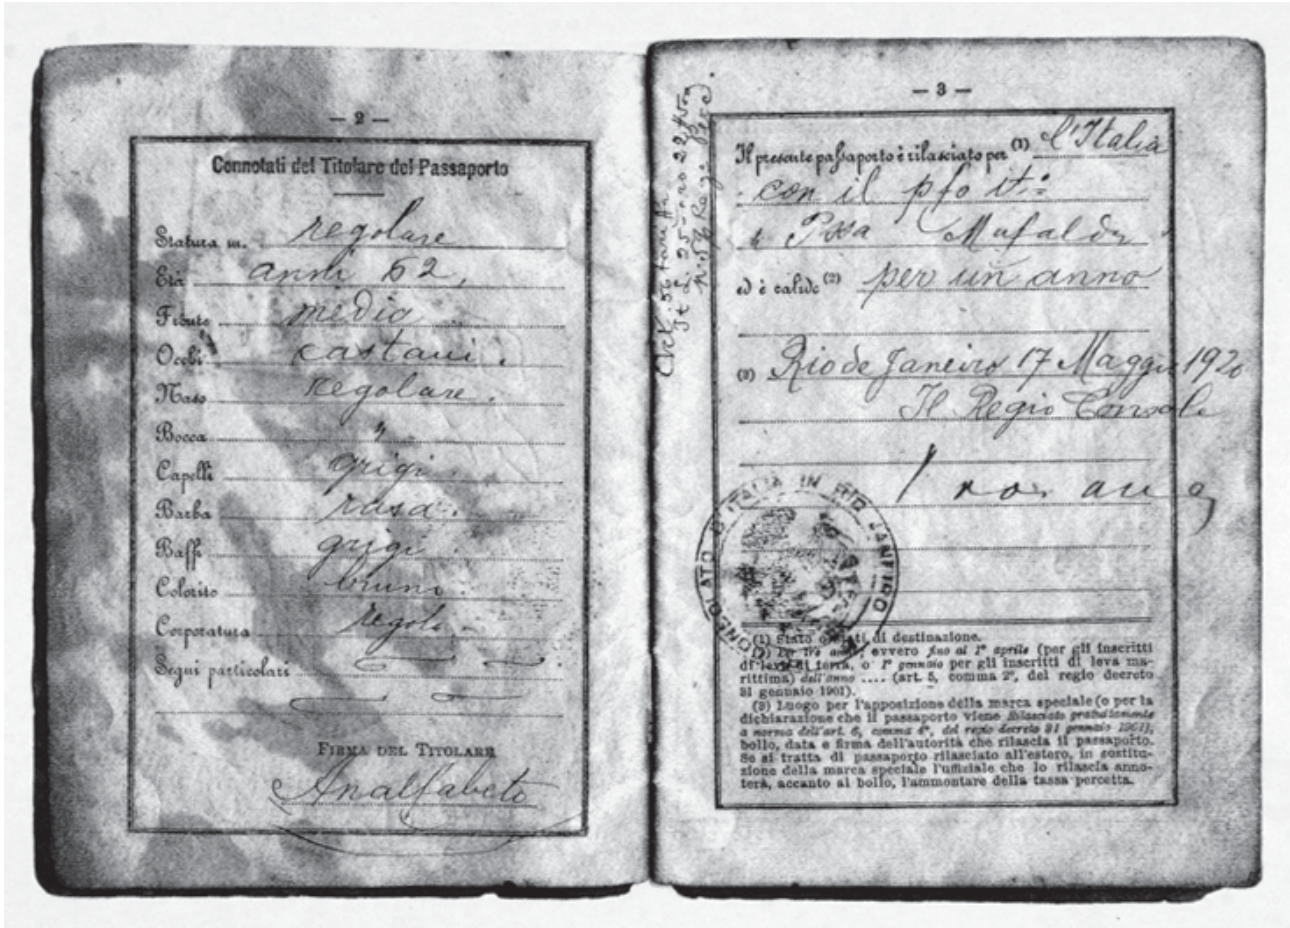 — 2 —
Connotati del Titolare del Passaporto
Statura m. regolare
Età anni 62,
Fronte media
Occhi castani.
Naso regolare.
Bocca "
Capelli grigi.
Barba rasa.
Baffi grigi.
Colorito bruno.
Corporatura regol.
Segni particolari
FIRMA DEL TITOLARE
Analfabeto
— 3 —
Il presente passaporto è rilasciato per (1) l'Italia
con il pfo it:º
Pssa Mafalda
ed è valido (2) per un anno
(3) Rio de Janeiro 17 Maggio 1920
Il Regio Console
CONSOLATO D'ITALIA IN RIO JANEIRO
(1) Stato o Stati di destinazione.
(2) Per tre anni, ovvero fino al 1º aprile (per gli inscritti
di leva di terra, o 1º gennaio per gli inscritti di leva ma-
rittima) dell'anno .... (art. 5, comma 2º, del regio decreto
31 gennaio 1901).
(3) Luogo per l'apposizione della marca speciale (o per la
dichiarazione che il passaporto viene rilasciato gratuitamente
a norma dell'art. 6, comma 4º, del regio decreto 31 gennaio 1901),
bollo, data e firma dell'autorità che rilascia il passaporto.
Se si tratta di passaporto rilasciato all'estero, in sostitu-
zione della marca speciale l'uffiziale che lo rilascia anno-
terà, accanto al bollo, l'ammontare della tassa percetta.